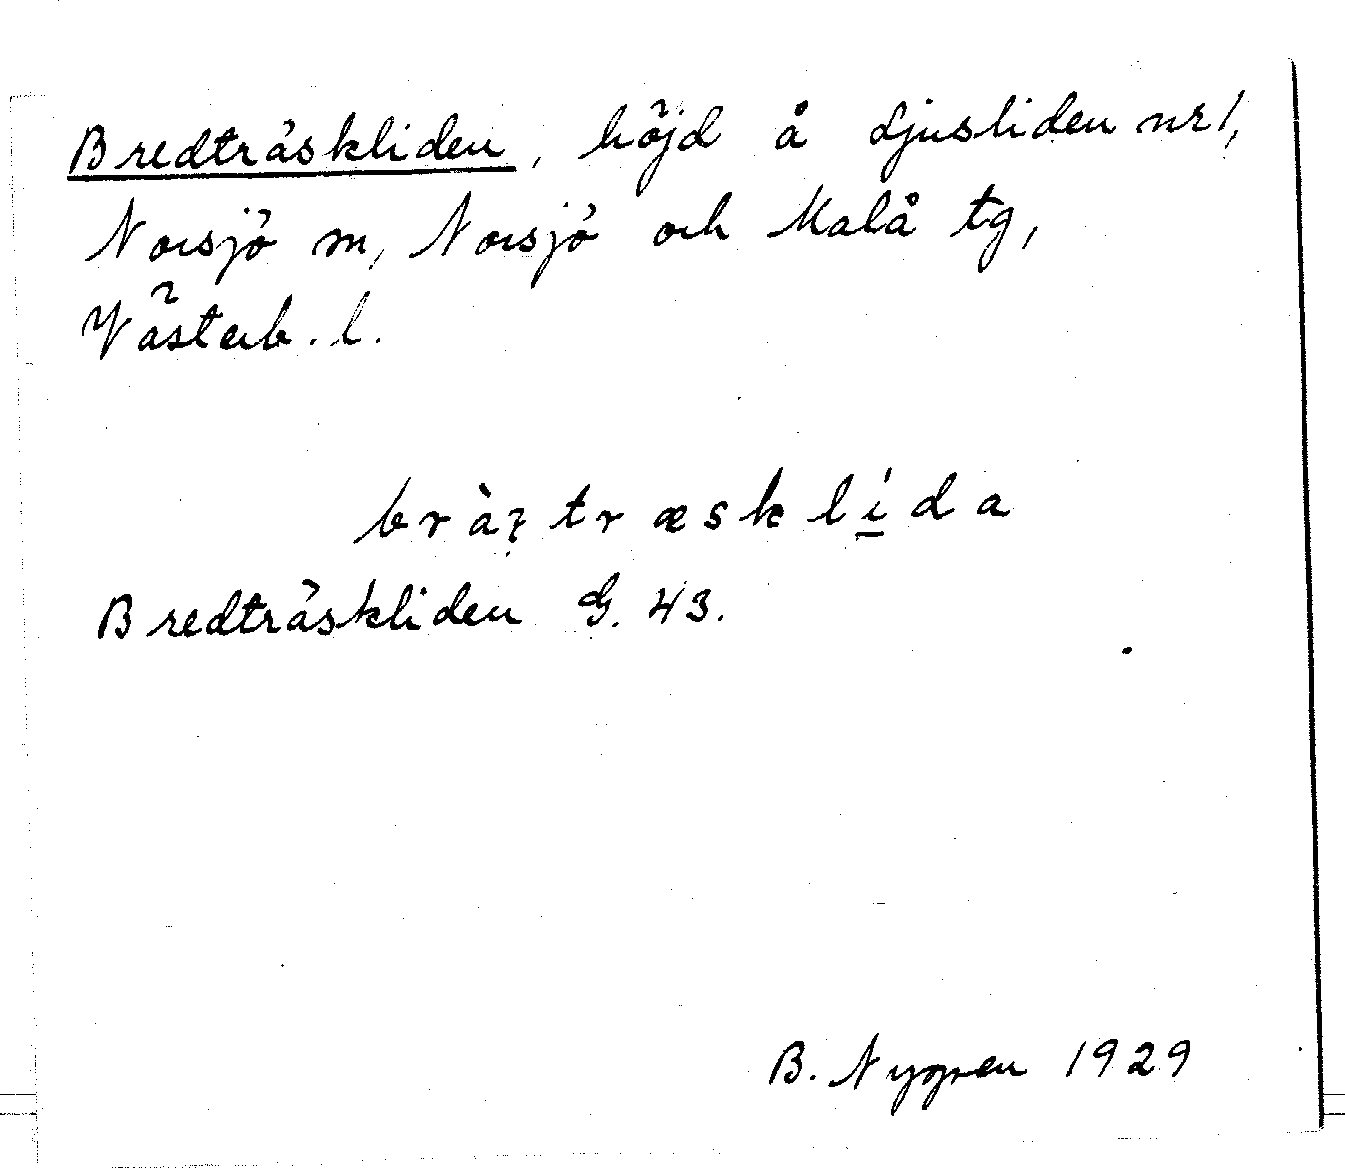 Bredträskliden, höjd å Ljusliden nr 1,
Norsjö sn, Norsjö och Malå tg,
Västerb. l.
bràʒtræsklída
Bredträskliden G. 43.
B. Nygren 1929